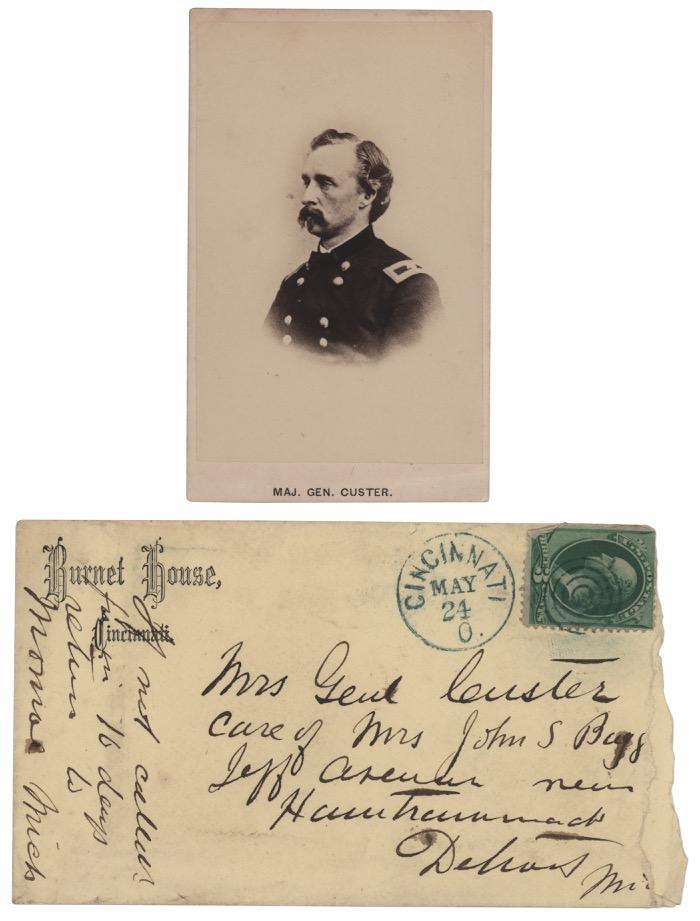 MAJ. GEN. CUSTER.
Burnet House,
Cincinnati.
CINCINNATI
MAY
24
O.
Mrs Genl Custer
Care of Mrs John S Bagg
Jeff Avenue near
Hamtrammack
Detroit Mi
If not called
for in 16 days
return to
Monroe Mich